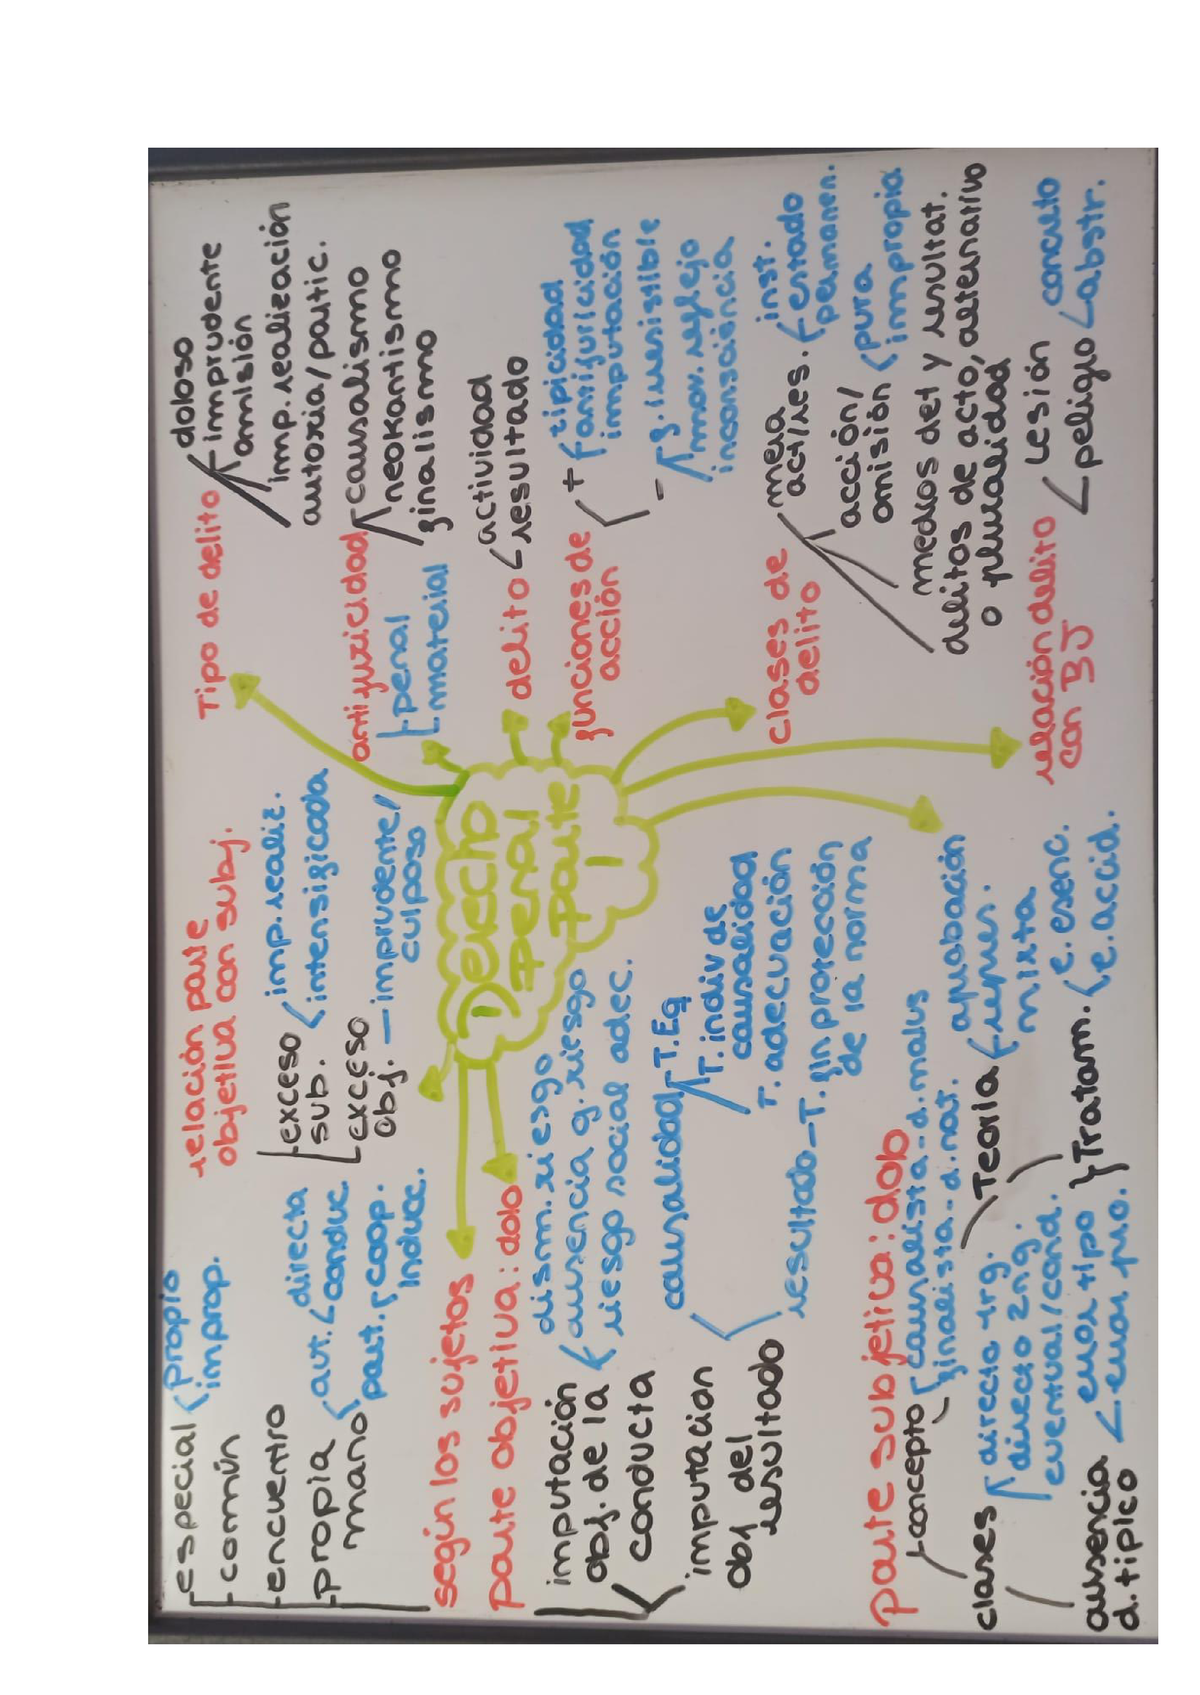 especial
propio
improp.
común
encuentro
propia
mano
aut.
directa
conduc
part.
coop.
induc.
según los sujetos
relación parte
objetiva con subj.
exceso
sub.
imp. realiz.
intensificada
exceso
obj. — imprudente/
culposo
Tipo de delito
doloso
imprudente
omisión
imp. realización
autoría/partic.
antijuricidad
penal
material
causalismo
neokantismo
finalismo
Derecho
Penal
Parte
1
delito
actividad
resultado
funciones de
acción
+
tipicidad
antijuricidad
imputación
-
f. irresistible
mov. reflejo
inconsciencia
parte objetiva: dolo
imputación
obj. de la
conducta
dism. riesgo
ausencia g. riesgo
riesgo social adec.
imputación
obj del
resultado
causalidad
T. Eq
T. indiv de
causalidad
T. adecuación
resultado — T. fin protección
de la norma
clases de
delito
mera
act/res.
inst.
estado
permanen.
acción/
omisión
pura
impropia
medios det y resultat.
delitos de acto, alternativo
o pluralidad
parte subjetiva: dolo
concepto
causalista - d. malus
finalista - d. nat.
clases
directo 1rg.
directo 2ng.
eventual/cond.
Teoría
aprobación
repres.
mixta
ausencia
d. típico
error tipo
error pro.
Tratam.
e. esenc.
e. accid.
relación delito
con BJ
Lesión
peligro
concreto
abstr.